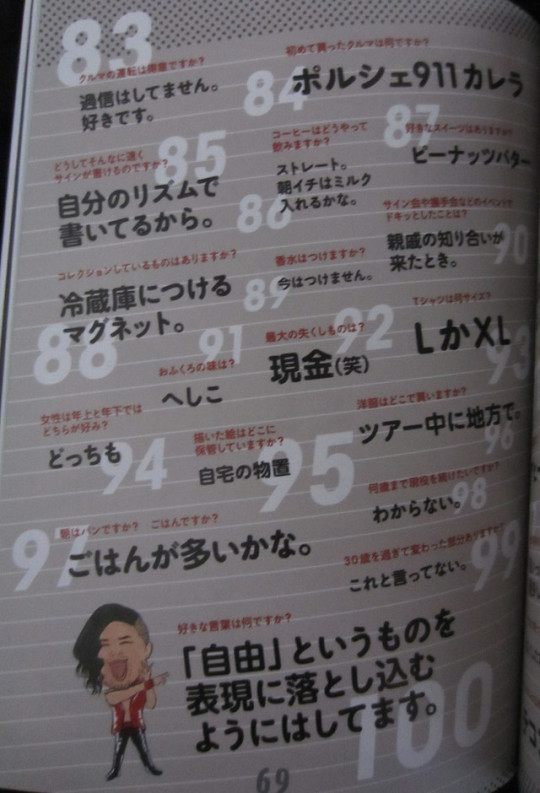 83
クルマの運転は得意ですか?
過信はしてません。
好きです。
84
初めて買ったクルマは何ですか?
ポルシェ911カレラ
85
どうしてそんなに速く
サインが書けるのですか?
自分のリズムで
書いてるから。
86
コーヒーはどうやって
飲みますか?
ストレート。
朝イチはミルク
入れるかな。
87
好きなスイーツはありますか?
ピーナッツバター
88
コレクションしているものはありますか?
冷蔵庫につける
マグネット。
89
香水はつけますか?
今はつけません。
90
サイン会や握手会などのイベントで
ドキッとしたことは?
親戚の知り合いが
来たとき。
91
おふくろの味は?
へしこ
92
最大の失くしものは?
現金(笑)
93
Tシャツは何サイズ?
LかXL
94
女性は年上と年下では
どちらが好み?
どっちも
95
描いた絵はどこに
保管していますか?
自宅の物置
96
洋服はどこで買いますか?
ツアー中に地方で。
97
朝はパンですか? ごはんですか?
ごはんが多いかな。
98
何歳まで現役を続けたいですか?
わからない。
99
30歳を過ぎて変わった部分ありますか?
これと言ってない。
100
好きな言葉は何ですか?
「自由」というものを
表現に落とし込む
ようにはしてます。
69